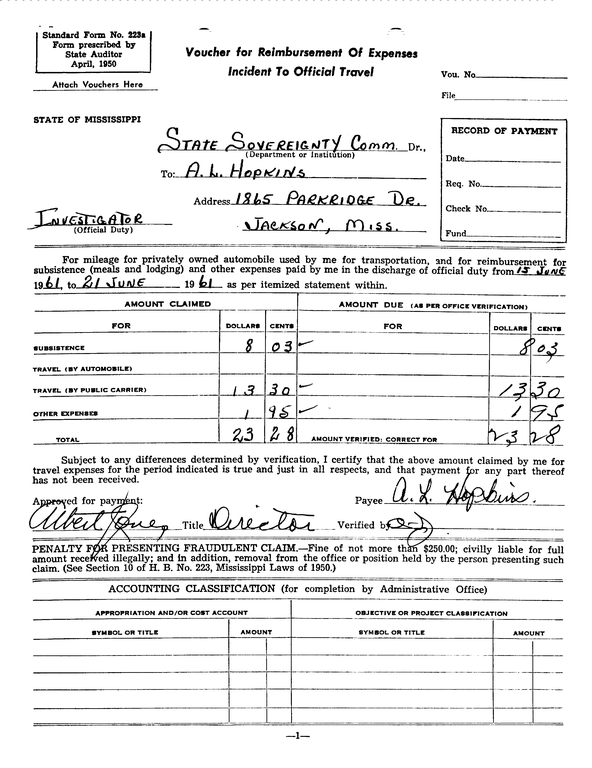 Standard Form No. 223a
Form prescribed by
State Auditor
April, 1950
Attach Vouchers Here
Voucher for Reimbursement Of Expenses
Incident To Official Travel
Vou. No.
File
STATE OF MISSISSIPPI
STATE SOVEREIGNTY COMM. Dr.,
(Department or Institution)
To: A. L. HOPKINS
Address 1865 PARKRIDGE DR.
JACKSON, MISS.
INVESTIGATOR
(Official Duty)
RECORD OF PAYMENT
Date
Req. No.
Check No.
Fund
For mileage for privately owned automobile used by me for transportation, and for reimbursement for
subsistence (meals and lodging) and other expenses paid by me in the discharge of official duty from 15 JUNE
1961, to 21 JUNE 1961 as per itemized statement within.
AMOUNT CLAIMED AMOUNT DUE (AS PER OFFICE VERIFICATION)
FOR DOLLARS CENTS FOR DOLLARS CENTS
SUBSISTENCE 8 03 8 03
TRAVEL (BY AUTOMOBILE)
TRAVEL (BY PUBLIC CARRIER) 13 30 13 30
OTHER EXPENSES 1 95 1 95
TOTAL 23 28 AMOUNT VERIFIED: CORRECT FOR 23 28
Subject to any differences determined by verification, I certify that the above amount claimed by me for
travel expenses for the period indicated is true and just in all respects, and that payment for any part thereof
has not been received.
Approved for payment: Payee A. L. Hopkins.
Albert Jones Title Director Verified by
PENALTY FOR PRESENTING FRAUDULENT CLAIM.—Fine of not more than $250.00; civilly liable for full
amount received illegally; and in addition, removal from the office or position held by the person presenting such
claim. (See Section 10 of H. B. No. 223, Mississippi Laws of 1950.)
ACCOUNTING CLASSIFICATION (for completion by Administrative Office)
APPROPRIATION AND/OR COST ACCOUNT OBJECTIVE OR PROJECT CLASSIFICATION
SYMBOL OR TITLE AMOUNT SYMBOL OR TITLE AMOUNT
—1—